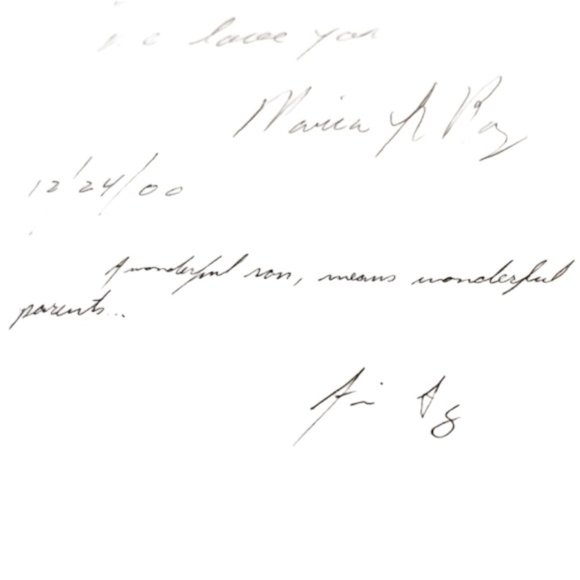 love you
Maria & Ray
12/24/00
A wonderful son, means wonderful
parents...